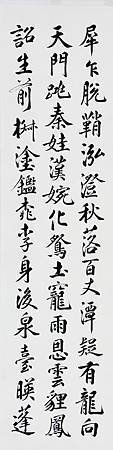 犀乍脫鞘泓澄秋落百丈潭疑有龍向
天門跳秦娃漢婉化驚土寵雨恩雲貍鳳
詔生前塗鑑李身後泉臺暎蓬